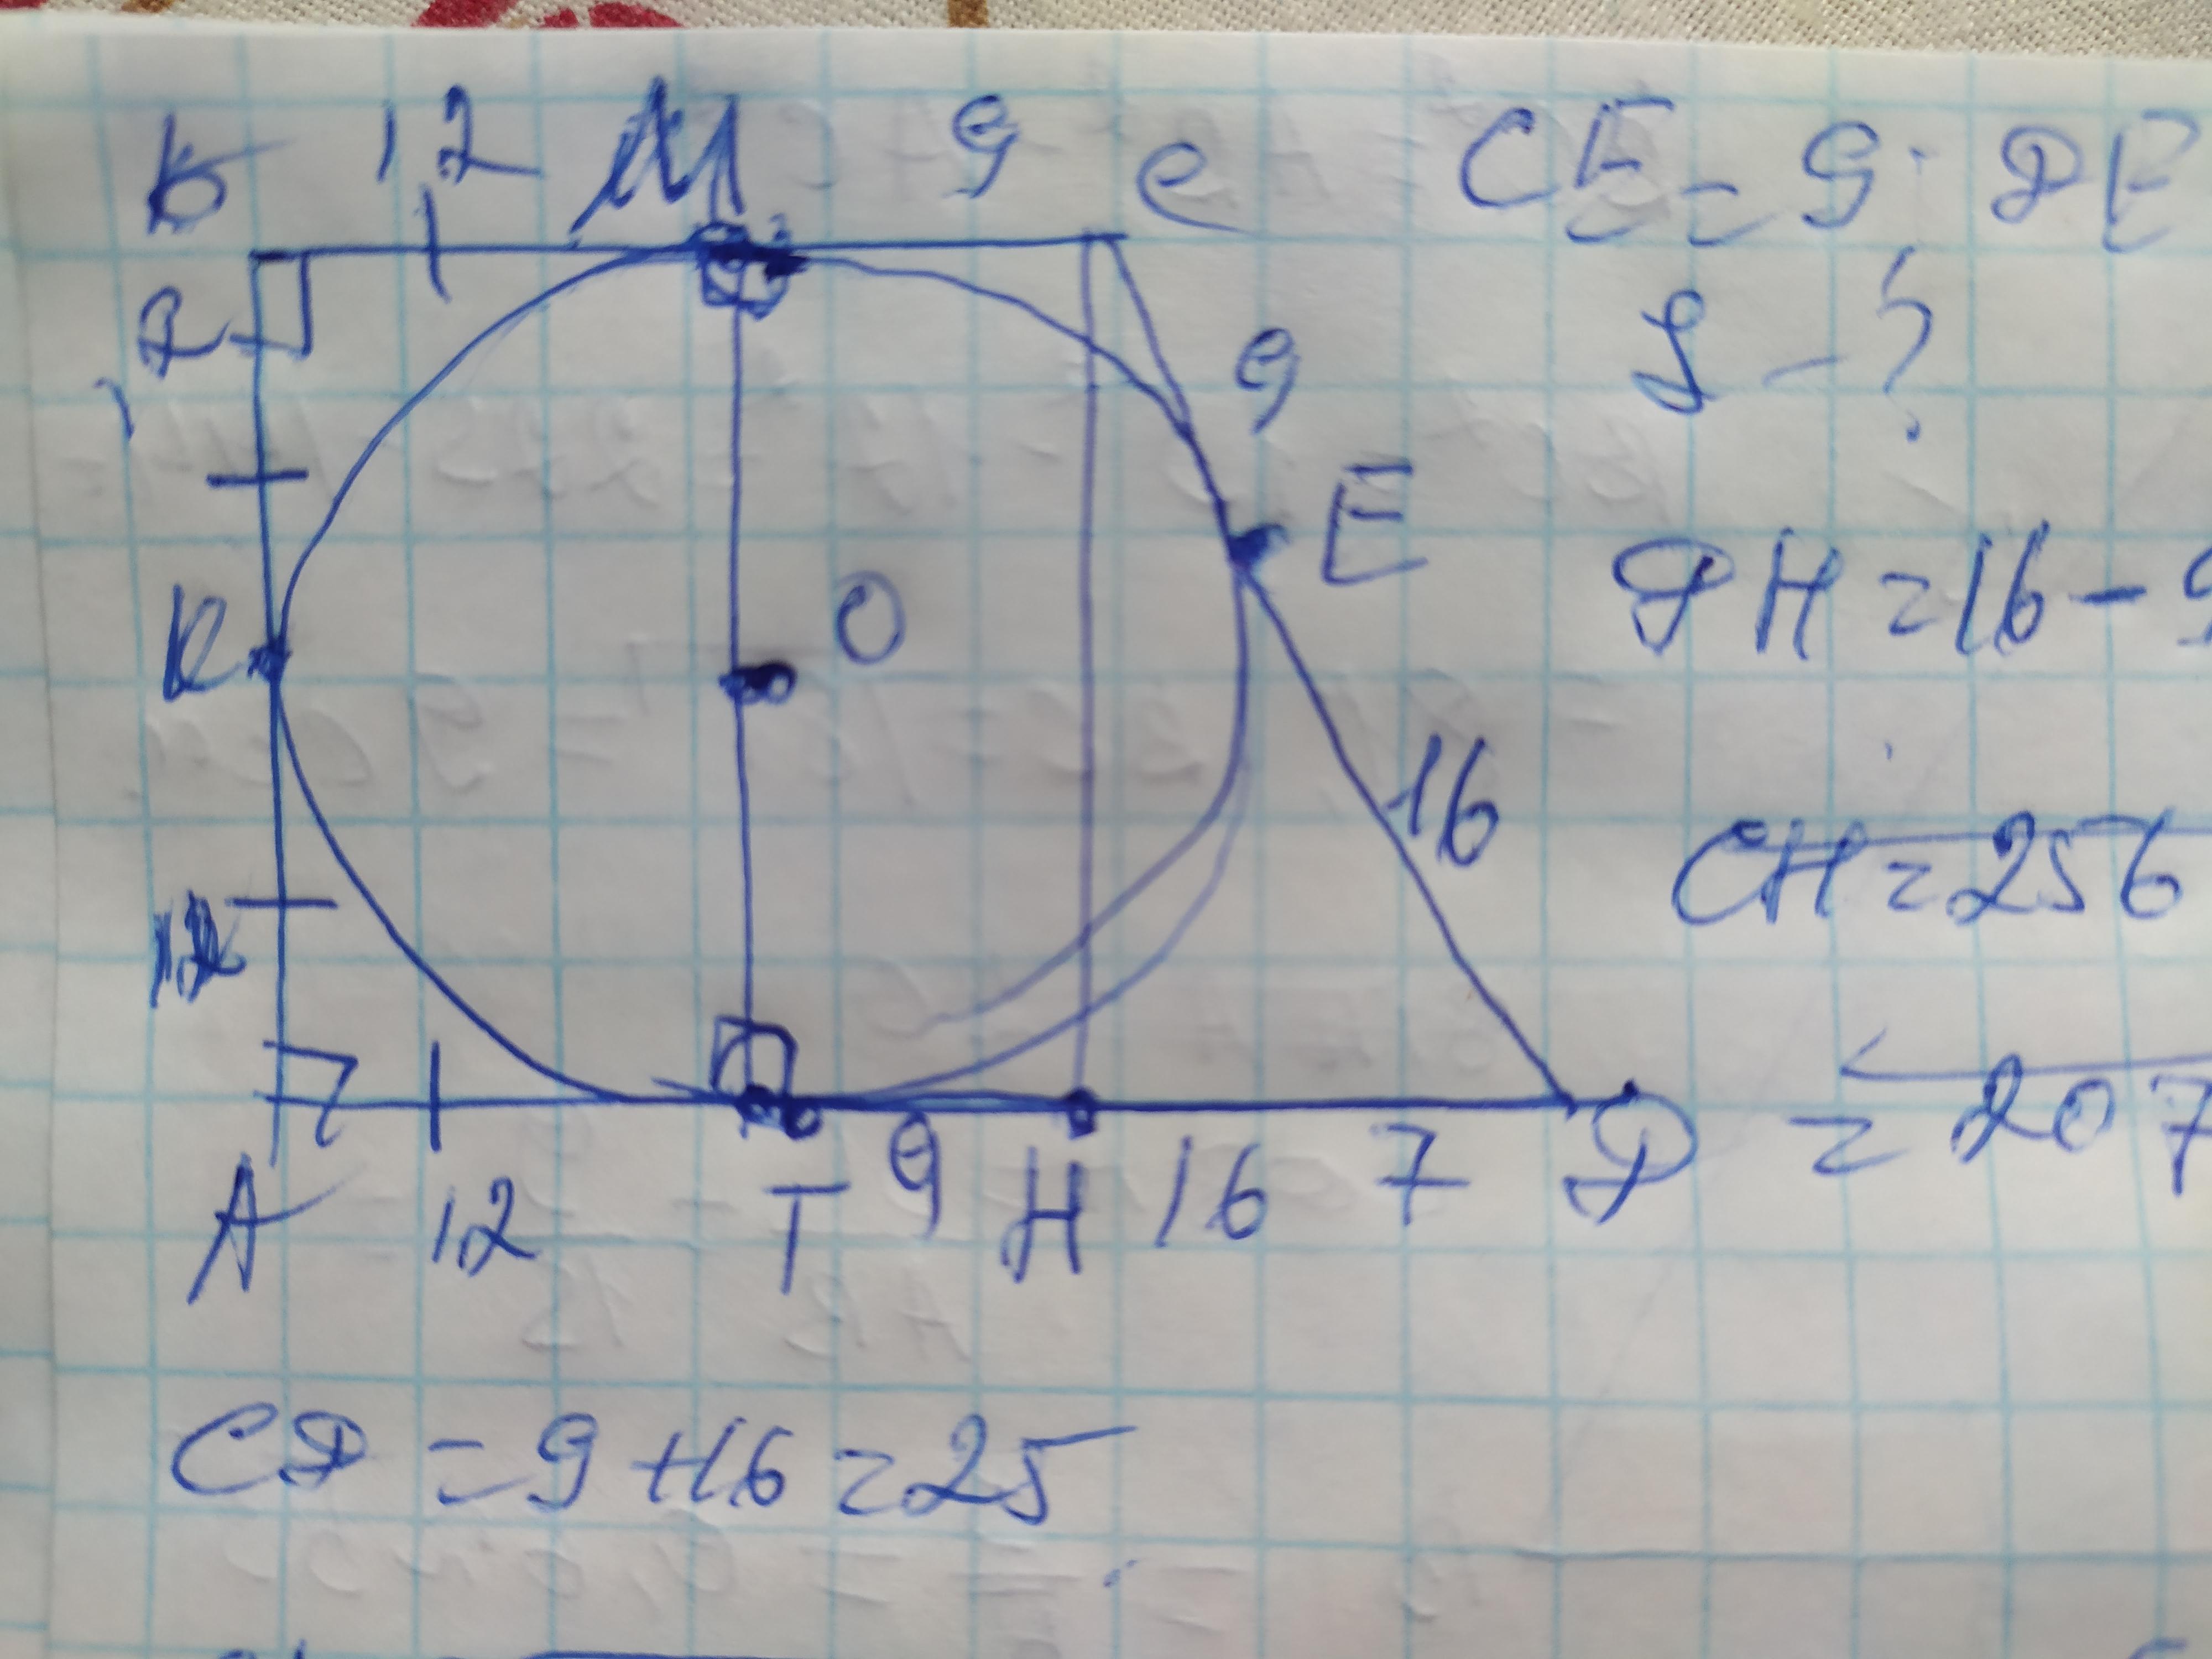 Б 12 М 9 С CE = 9; DE
S - ?
9
E
К O
DH = 16 - 9
16
CH = 256
12
= 207
A 12 T 9 H 16 7 D
CD = 9 + 16 = 25